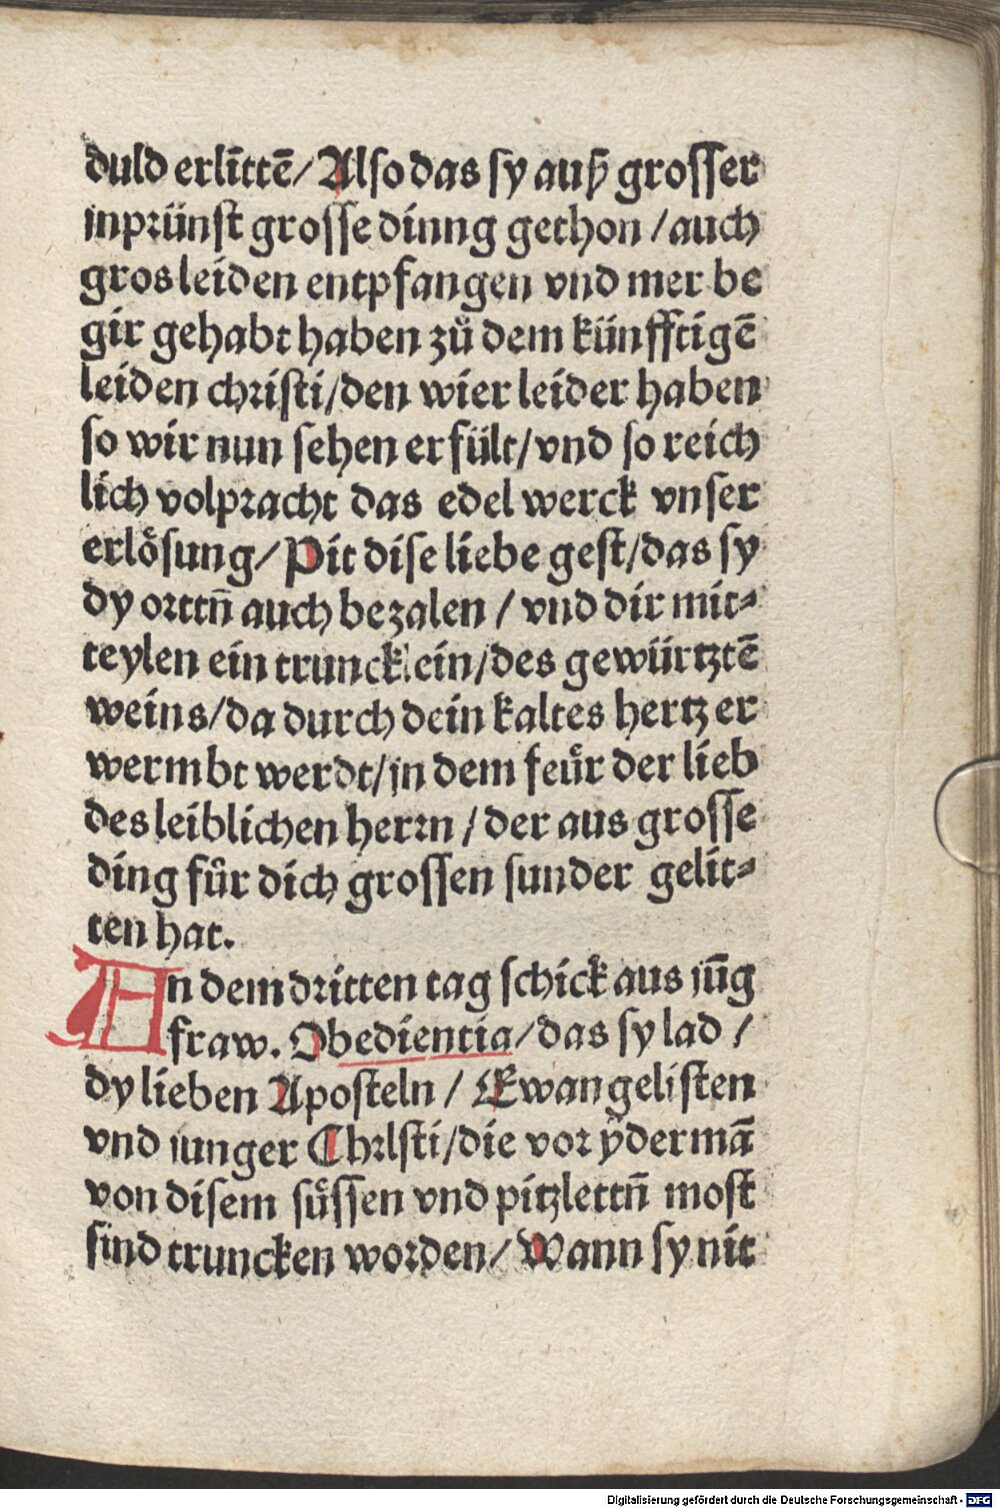 duld erlittē/Also das sy auß grosser
inprünst grosse dinng gethon /auch
gros leiden entpfangen vnd mer be
gir gehabt haben zů dem künfftigē
leiden christi/den wier leider haben
so wir nun sehen erfült/vnd so reich
lich volpracht das edel werck vnser
erlösung/Pit dise liebe gest/das sy
dy orttn̄ auch bezalen / vnd dir mit⸗
teylen ein trunck.ein/des gewürtztē
weins/da durch dein kaltes hertz er
wermbt werdt/in dem feür der lieb
des leiblichen herrn / der aus grosse
ding für dich grossen sunder gelit⸗
ten hat.
An dem dritten tag schick aus jūg
fraw. Obedientia/das sy lad /
dy lieben Aposteln / Ewangelisten
vnd iunger Chrlsti/die vor ÿdermā
von disem süssen vnd pitzlettn̄ most
sind truncken worden/Wann sy nit
Digitalisierung gefördert durch die Deutsche Forschungsgemeinschaft - DFG